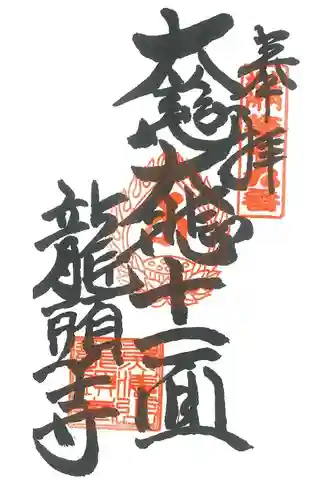 奉拝
大慈大悲十一面
龍頭寺